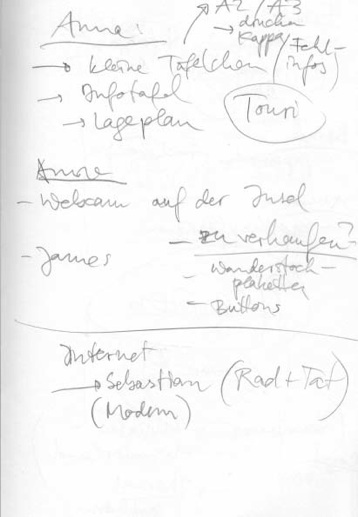 Anna:
A2 / A3
→ drucken
→ Kappa / Fehl-
infos
→ kleine Täfelchen
→ Infotafel
→ Lageplan
Touri
- Webcam auf der Insel
- James
- zu verkaufen?
- Wanderstock-
plaketten
- Buttons
Internet
→ Sebastian (Rad + Tat)
(Modem)